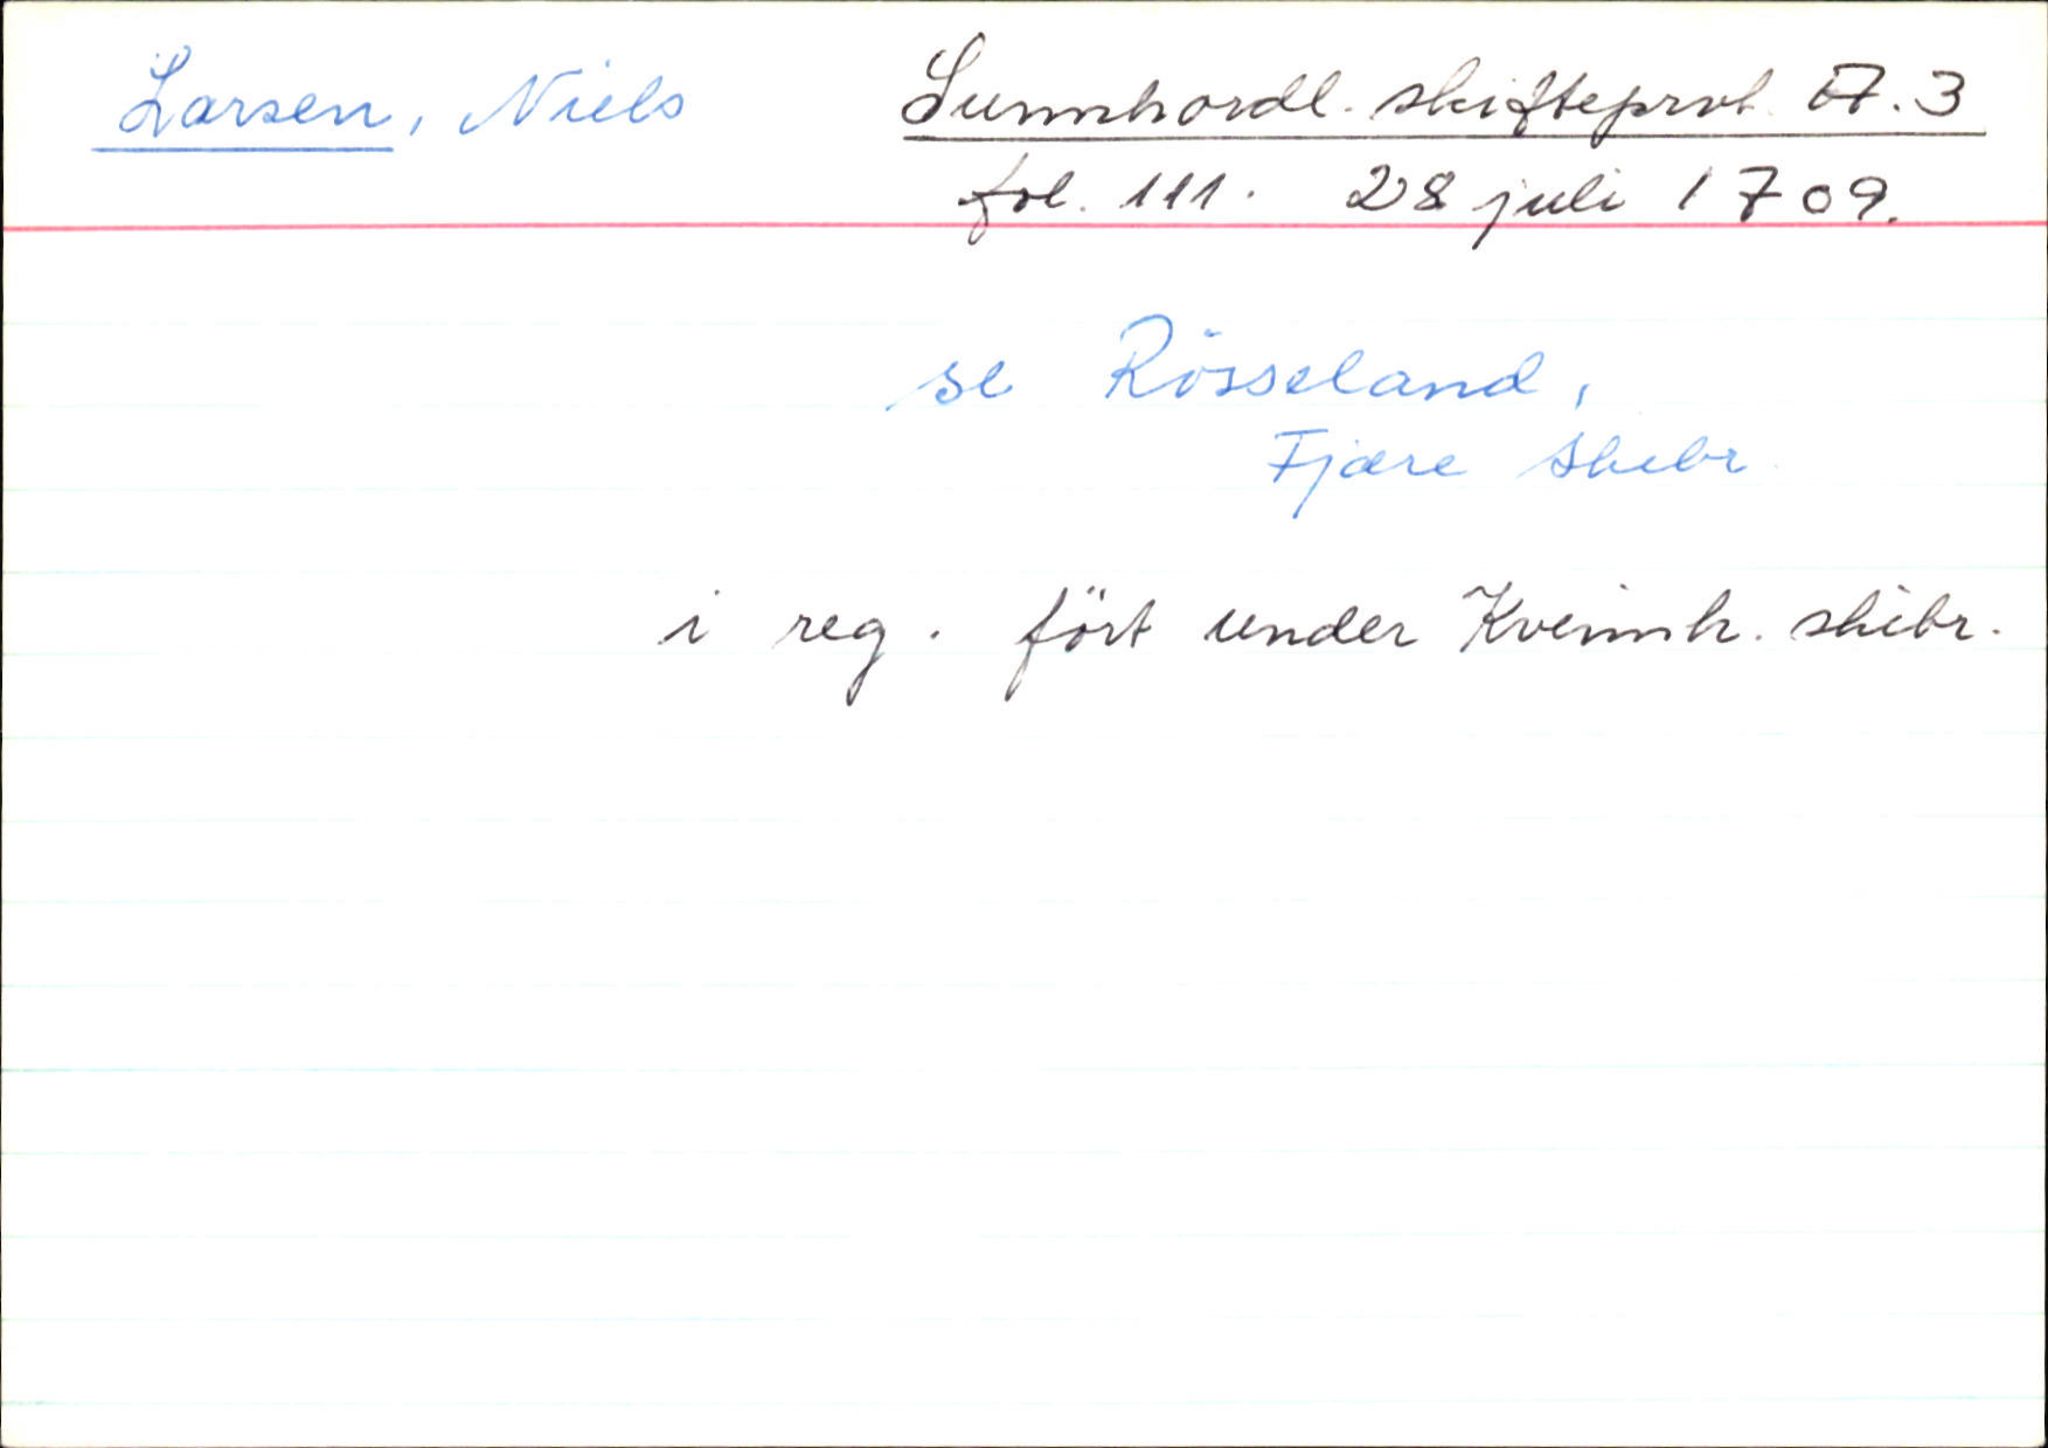 Larsen, Niels
Sunnhordl. skifteprot. A.3
fol. 111. 28 juli 1709.
se Rösseland,
Fjære skibr
i reg. fört under Kvinnh. skibr.